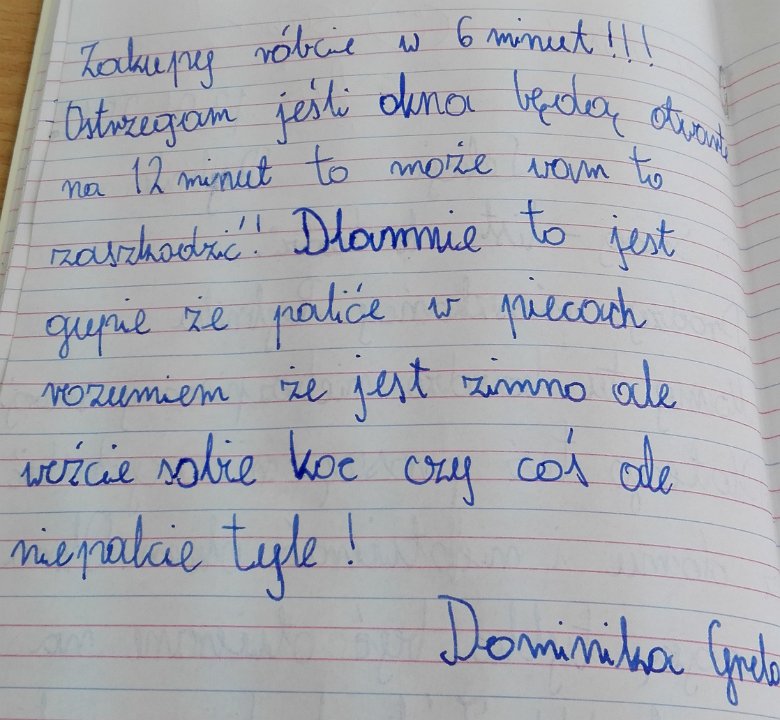 Zakupy róbcie w 6 minut!!!
Ostrzegam jeśli okna będą otwart
na 12 minut to może wam to
zaszkodzić!! Dlamnie to jest
gupie że paliće w piecach
rozumiem że jest zimno ale
weźcie sobie koc czy coś ale
niepalcie tyle!
Dominika